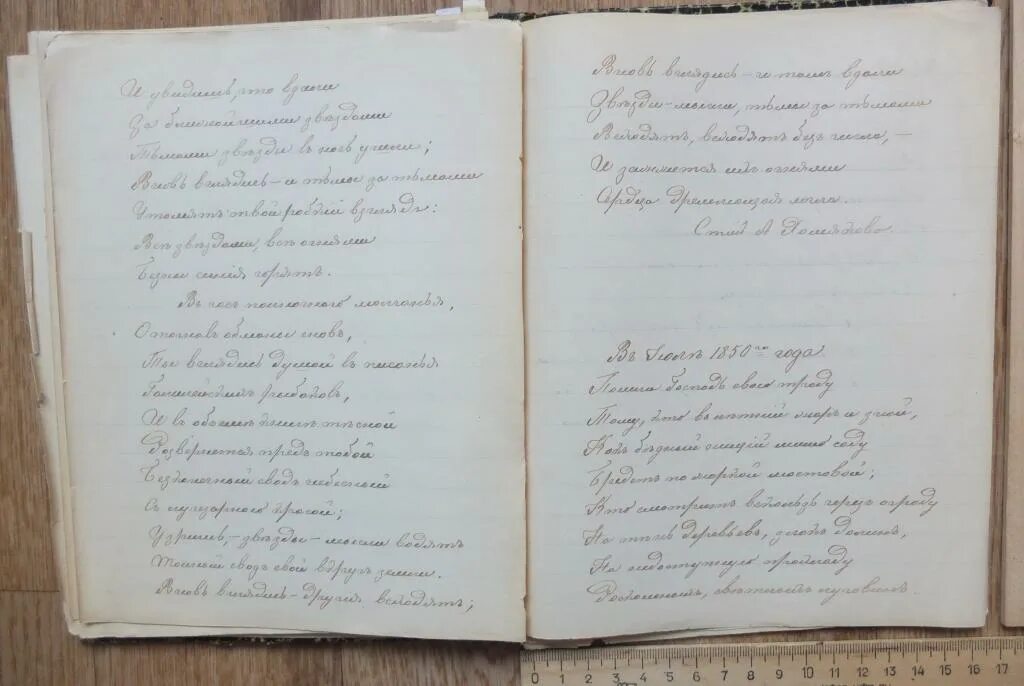 И увидишь, что вдали
За ближайшими звѣздами
Тьмами звѣзды въ ночь ушли;
Вновь вглядись – и тьмы за тьмами
Утомятъ твой робкій взглядъ:
Всѣ звѣздами, всѣ огнями
Бездны синія горятъ.
Въ часъ полночного молчанья,
Отогнавъ обманы сновъ,
Ты вглядись душой въ писанья
Галилейскихъ рыбаковъ,
И въ объемѣ книги тѣсной
Развернется предъ тобой
Безконечный сводъ небесный
Съ лучезарною красой;
Узришь, – звѣзды – мысли водятъ
Тайный сводъ свой вкругъ земли.
Вновь вглядись – другія всходятъ;
Вновь вглядись – и тамъ вдали
Звѣзды – мысли, тьмы за тьмами
Всходятъ, всходятъ безъ числа, –
И зажжется ихъ огнями
Сердца дремлющая мгла.
Стих А Хомякова
Въ Іюлѣ 1850го года
Пошли Господь свою отраду
Тому, кто въ лѣтній жаръ и зной,
Какъ бѣдный нищій мимо саду
Бредетъ по жаркой мостовой;
Кто смотритъ вскользь черезъ ограду
На тѣнь деревьевъ, злакъ долинъ,
На недоступную прохладу
Роскошныхъ, свѣтлыхъ луговинъ.
0 1 2 3 4 5 6 7 8 9 10 11 12 13 14 15 16 17